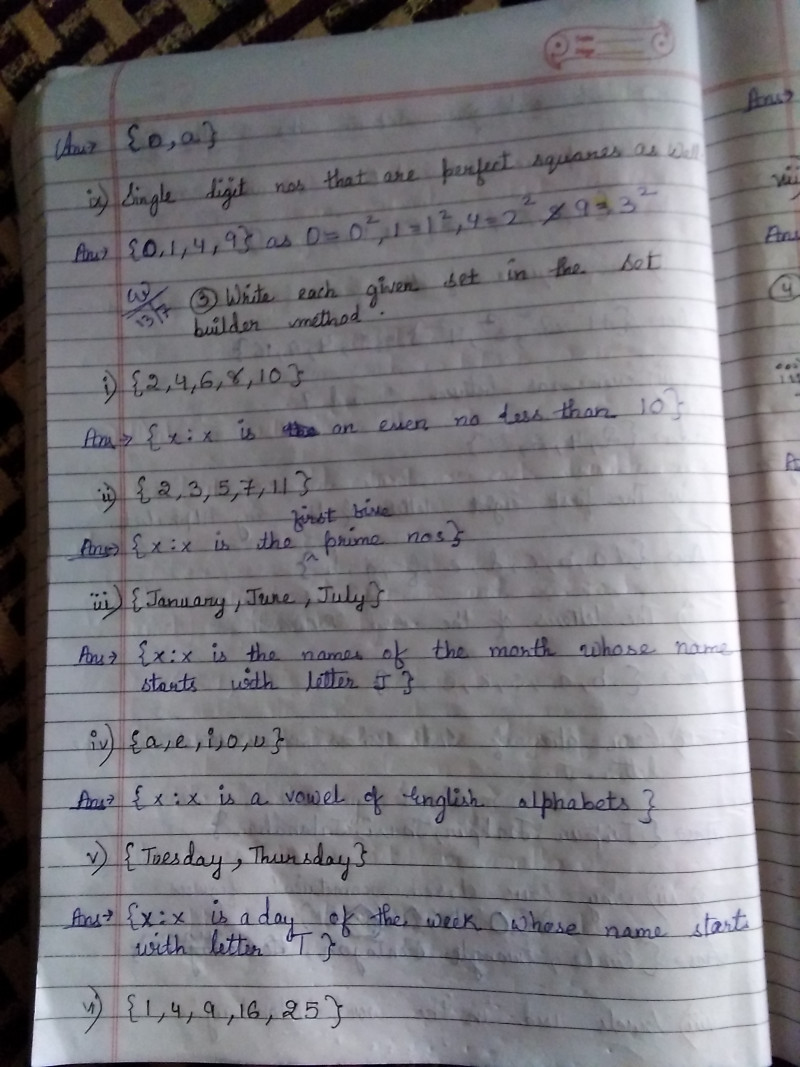 Ans→ {0,a}
ix) Single digit nos that are perfect squares as well
Ans→ {0,1,4,9} as 0=0², 1=1², 4=2² & 9=3²
③ Write each given set in the set
builder method.
i) {2,4,6,8,10}
Ans→ {x:x is an even no less than 10}
ii) {2,3,5,7,11}
first five
Ans→ {x:x is the ^ prime nos}
iii) {January, June, July}
Ans→ {x:x is the names of the month whose name
starts with letter J}
iv) {a,e,i,o,u}
Ans→ {x:x is a vowel of English alphabets}
v) {Tuesday, Thursday}
Ans→ {x:x is a day of the week whose name starts
with letter T}
vi) {1,4,9,16,25}
Ans→
viii
Ans
④